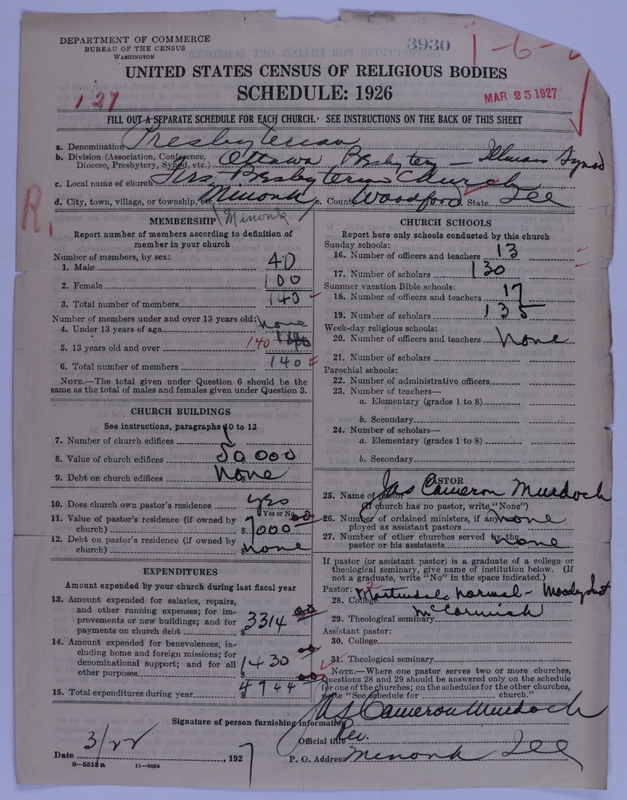 DEPARTMENT OF COMMERCE
BUREAU OF THE CENSUS
WASHINGTON
3930
1-6-
UNITED STATES CENSUS OF RELIGIOUS BODIES
SCHEDULE: 1926
127
MAR 25 1927
FILL OUT A SEPARATE SCHEDULE FOR EACH CHURCH. SEE INSTRUCTIONS ON THE BACK OF THIS SHEET
a. Denomination Presbyterian
b. Division (Association, Conference, Diocese, Presbytery, Synod, etc.) Ottawa Presbytery - Illinois Synod
c. Local name of church Presbyterian Church
d. City, town, village, or township, etc. Minonk e. County Woodford State Ill
R.
Minonk
MEMBERSHIP
Report number of members according to definition of
member in your church
Number of members, by sex:
1. Male 40
2. Female 100
3. Total number of members 140
Number of members under and over 13 years old:
4. Under 13 years of age none
5. 13 years old and over 140
6. Total number of members 140
NOTE.—The total given under Question 6 should be the
same as the total of males and females given under Question 3.
CHURCH BUILDINGS
See instructions, paragraphs 10 to 12
7. Number of church edifices 1
8. Value of church edifices 50000
9. Debt on church edifices None
10. Does church own pastor's residence yes
Yes or No
11. Value of pastor's residence (if owned by
church) $7000 00
12. Debt on pastor's residence (if owned by
church) $ none
EXPENDITURES
Amount expended by your church during last fiscal year
13. Amount expended for salaries, repairs,
and other running expenses; for im-
provements or new buildings; and for
payments on church debt $3314 00
14. Amount expended for benevolences, in-
cluding home and foreign missions; for
denominational support; and for all
other purposes $1430 00
15. Total expenditures during year $4744 00
CHURCH SCHOOLS
Report here only schools conducted by this church
Sunday schools:
16. Number of officers and teachers 13
17. Number of scholars 130
Summer vacation Bible schools:
18. Number of officers and teachers 17
19. Number of scholars 135
Week-day religious schools:
20. Number of officers and teachers None
21. Number of scholars
Parochial schools:
22. Number of administrative officers
23. Number of teachers—
a. Elementary (grades 1 to 8)
b. Secondary
24. Number of scholars—
a. Elementary (grades 1 to 8)
b. Secondary
PASTOR
25. Name of pastor Jas Cameron Murdoch
(If church has no pastor, write "None")
26. Number of ordained ministers, if any, em-
ployed as assistant pastors none
27. Number of other churches served by the
pastor or his assistants none
If pastor (or assistant pastor) is a graduate of a college or
theological seminary, give name of institution below. (If
not a graduate, write "No" in the space indicated.)
Pastor:
28. College Normal - Moody Inst
29. Theological seminary McCormick
Assistant pastor:
30. College
31. Theological seminary
NOTE.—Where one pastor serves two or more churches,
Questions 28 and 29 should be answered only on the schedule
for one of the churches; on the schedules for the other churches,
write "See schedule for church."
Signature of person furnishing information Jas Cameron Murdoch
Official title Rev.
Date 3/22, 1927
P. O. Address Minonk Ill
8—5518a 11—9034